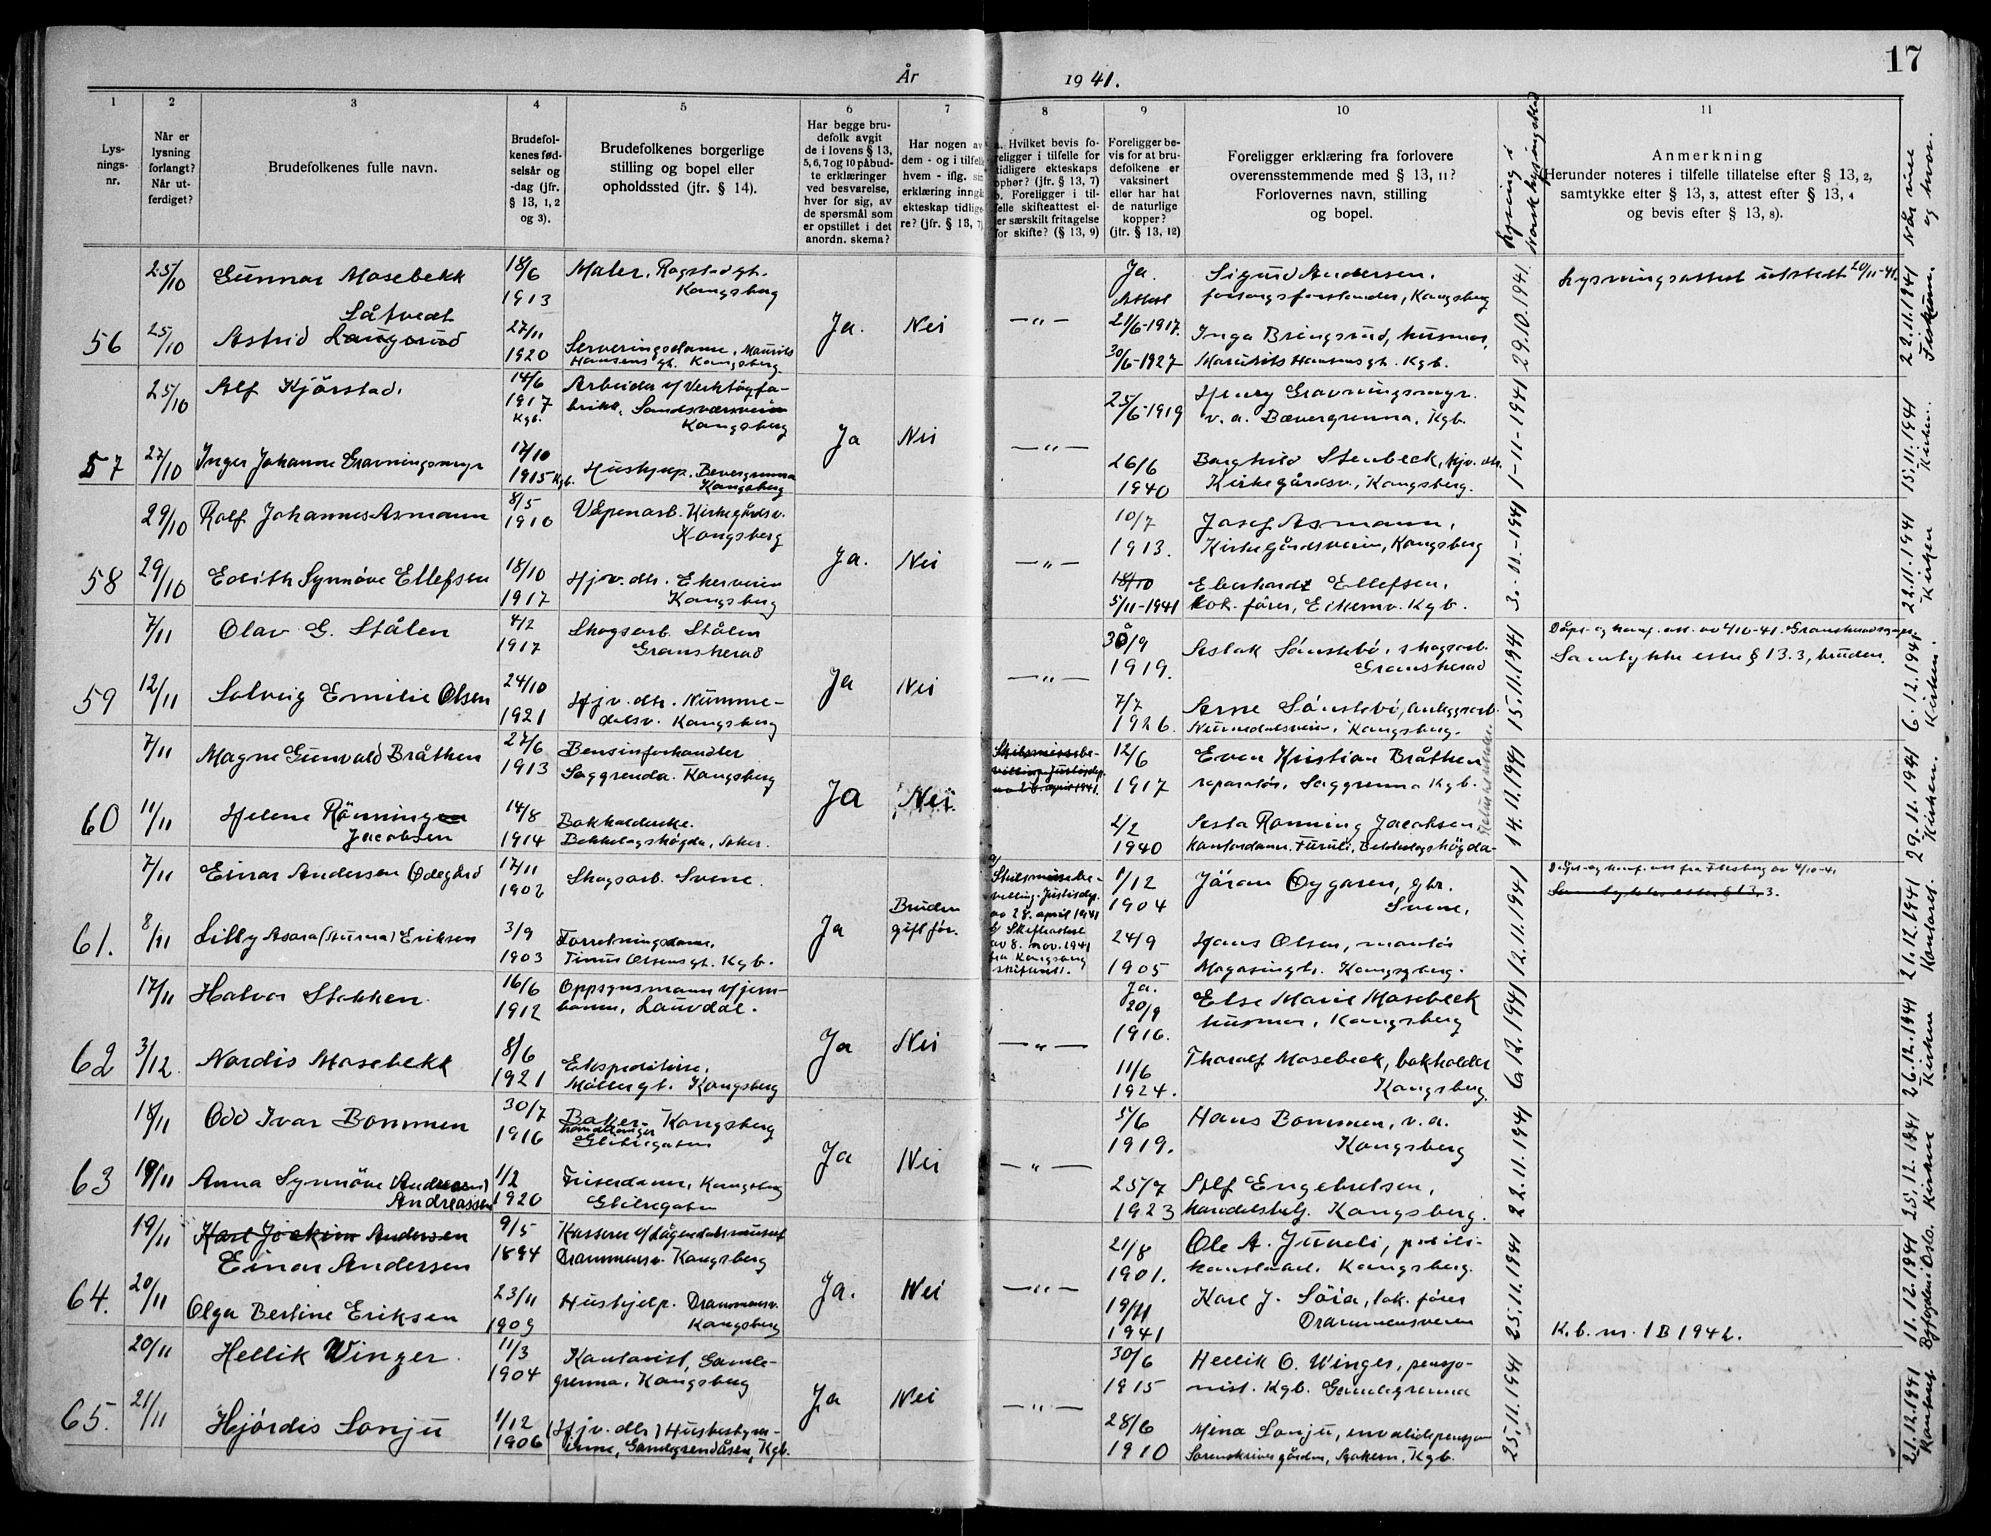 År 1941.
17
1 2 3 4 5 6 7 8 9 10 11
Lysningsnr.
Når er lysning forlangt? Når utferdiget?
Brudefolkenes fulle navn.
Brudefolkenes fødselsår og -dag (jfr. § 13, 1, 2 og 3).
Brudefolkenes borgerlige stilling og bopel eller opholdssted (jfr. § 14).
Har begge brudefolk avgit de i lovens § 13, 5, 6, 7 og 10 påbudte erklæringer ved besvarelse, hver for sig, av de spørsmål som er opstillet i det anordn. skema?
Har nogen av dem - og i tilfelle hvem - iflg. sin erklæring inngått ekteskap tidligere? (jfr. § 13, 7)
a. Hvilket bevis foreligger i tilfelle for tidligere ekteskaps ophør? (jfr. § 13, 7) b. Foreligger i tilfelle skifteattest eller særskilt fritagelse for skifte? (§ 13, 9)
Foreligger bevis for at brudefolkene er vaksinert eller har hat de naturlige kopper? (jfr. § 13, 12)
Foreligger erklæring fra forlovere overensstemmende med § 13, 11? Forlovernes navn, stilling og bopel.
Lysning i Norsk Lysningsblad
Anmerkning
(Herunder noteres i tilfelle tillatelse efter § 13, 2, samtykke efter § 13, 3, attest efter § 13, 4 og bevis efter § 13, 8).
Når viet og hvor.
25/10 Gunnar Mosebekk 18/6 1913 Maler, Kongsberg
Ja. Attest 21/6-1917. Sigurd Andersen, Kongsberg
29.10.1941. Lysningsattest utstedt 20/11-41. 22.11.1941
56 25/10 Astrid Låtvedt 27/11 1920 Serveringsdame, Maurits Hansens gt. Kongsberg Ja. Nei —"—
30/6-1927 Inga Bringsrud, husmor, Maurits Hansens gt. Kgb.
25/10 Alf Kjørstad. 14/6 1917 Kgb. Arbeider v/ Verktøyfabrikk, Sandsværsveien Kongsberg
25/6-1919 Henry Gravningsmyr. v.a. Bævergrenna, Kgb.
1-11-1941 15.11.1941 Kirken.
57 27/10 Inger Johanne Gravningsmyr 17/10 1915 Kgb. Hushjelp. Bevergrenna Kongsberg Ja Nei —"—
26/6 1940 Borghild Stenbeck, hjv. dtr. Kirkegårdsv., Kongsberg.
29/10 Rolf Johannes Asmann 8/5 1910 Våpenarb. Kirkegårdsv. Kongsberg
10/7 1913. Josef Asmann, Kirkegårdsveien, Kongsberg
3.-11.-1941 22.11.1941 Kirken
58 29/10 Edith Synnøve Ellefsen 18/10 1917 Hjv. dtr. Ekerveien Kongsberg Ja. Nei —"—
18/10 5/11-1941 Eberhardt Ellefsen, lok. fører, Eikerv. Kgb.
7/11 Olav G. Stålen 4/2 1917 Skogsarb. Stålen Gransherad
30/9 1919. Aslak Sønstebø, skogsarb. Gransherad
15.11.1941 Dåps- og konf. att. av 4/10-41. Gransherad
Samtykke etter § 13.3, bruden. 6.12.1941 Kirken.
59 12/11 Solveig Emilie Olsen 24/10 1921 Hjv. dtr. Nummedalsv. Kongsberg Ja Nei —"—
7/7 1926. Arne Sønstebø, anleggsarb. Nummedalsveien, Kongsberg.
7/11 Magne Gunvald Bråthen 27/6 1913 Bensinforhandler Saggrenda. Kongsberg
Skilsmissebevilling. Justisdep. av 28. april 1941.
12/6 1917 Even Kristian Bråthen reparatør, Saggrenna Kgb.
14.11.1941 29.11.1941 Kirken.
60 11/11 Helene Rønningen Jacobsen 14/8 1914 Bokholderske. Bekkelagshøgda, Aker. Ja Nei
2/2 1940 Asta Rønning Jacobsen Kontordame. Furuli, Bekkelagshøgda
7/11 Einar Andersen Ødegård 17/11 1902 Skogsarb. Svene.
a/ Skilsmissebevilling. Justisdep. av 28. april 1941
b/ Skifteattest av 8. nov. 1941 fra Kongsberg skifterett.
1/12 1904 Jøran Oygaren, gbr. Svene.
12.11.1941 Dåps- og konf. att fra Flesberg av 4/10-41
Samtykke etter § 13.3. 21.12.1941 Kontoret.
61. 8/11 Lilly Asora (Aurora) Eriksen 3/9 1903 Forretningsdame, Tinius Olsens gt. Kgb. Ja Bruden gift før.
24/9 1905 Hans Olsen, montør Magasingt. Kongsberg.
17/11 Halvor Stokken 16/6 1912 Oppsynsmann v/ jernbanen, Lauvdal.
Ja. 20/9 1916. Else Marie Mosebeck husmor, Kongsberg
6.12.1941 26.12.1941 Kirken
62 3/12 Nordis Mosebekk 8/6 1921 Ekspeditrise, Møllergt. Kongsberg Ja Nei —"—
11/6 1924. Thoralf Mosebeck, bokholder Kongsberg.
18/11 Odd Ivar Bommen 30/7 1916 Baker Kongsberg Glitregaten
5/6 1919. Hans Bommen, v.a. Kongsberg
22.11.1941 25.12.1941 Kirken
63 19/11 Anna Synnøve (Andreasen) Andreassen 1/2 1920 Friserdame, Kongsberg Glitregaten Ja Nei —"—
25/7 1923 Alf Engebretsen, handelsbetj. Kongsberg.
19/11 Karl Joakim Andersen Einar Andersen 9/5 1894 Kasserer v/ Lågendalsmuseet Drammensv. Kongsberg
21/8 1901. Ole A. Juveli, politikonstabel. Kongsberg.
25.11.1941 11.12.1941 Byfogden i Oslo.
64. 20/11 Olga Bertine Eriksen 23/11 1909 Hushjelp. Drammensv. Kongsberg Ja. Nei —"—
19/11 1941 Karl J. Søia, lok. fører Drammensveien
K.b. nr. 1 B 1942.
20/11 Hellik Winger 11/3 1904 Kontorist, Gamlegrenna, Kongsberg
30/6 1915 Hellik O. Winger, pensjonist. Kgb. Gamlegrenna
25.11.1941 21.12.1941 Kontoret
65. 21/11 Hjørdis Sonju 1/12 1906 (Hjv. dtr.) Husbestyrerinne, Gamlegrendåsen, Kgb. Ja Nei —"—
28/6 1910 Mina Sonju, invalidepensjon Sorenskrivergården, Kgb.